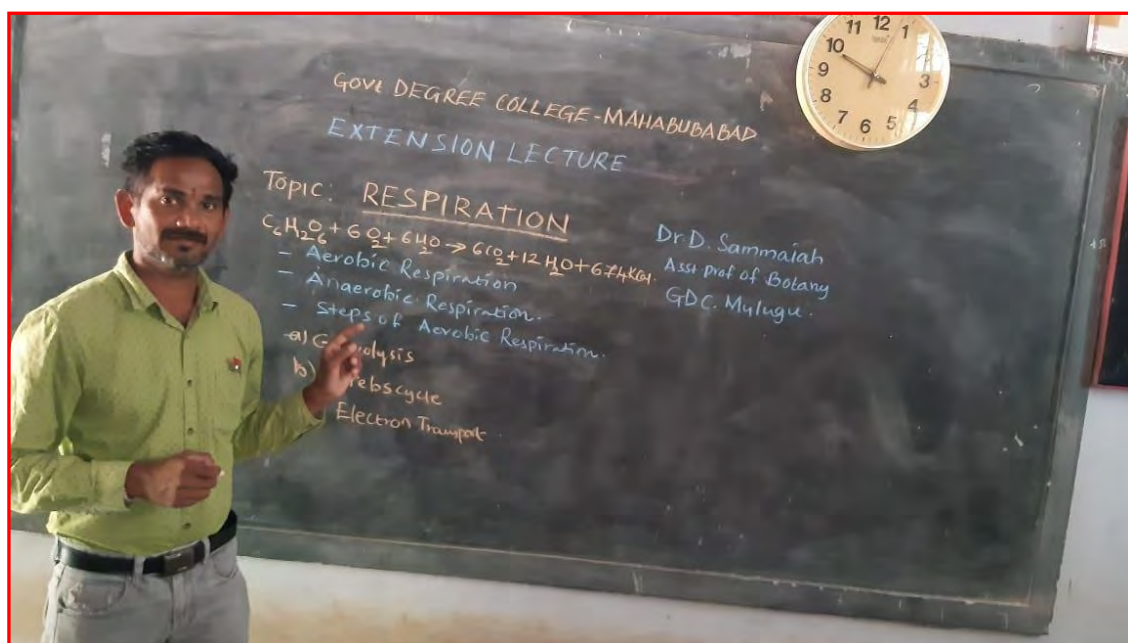 GOVt DEGREE COLLEGE-MAHABUBABAD
EXTENSION LECTURE
Topic: RESPIRATION
C6H2O6 + 6O2 + 6H2O → 6CO2 + 12H2O + 674KCal.
- Aerobic Respiration
- Anaerobic Respiration.
- Steps of Aerobic Respiration.
a) G olysis
b) rebscycle
Electron Transport
Dr D. Sammaiah
Asst Prof of Botany
GDC. Mulugu.
11 12 1
10
9 3
8 4
7 6 5